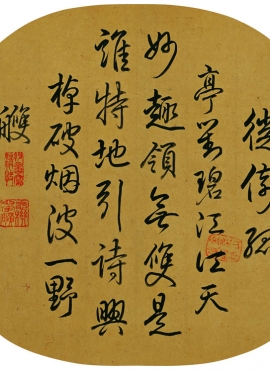 徙倚孤
亭對碧江江天
妙趣領無雙是
誰特地引詩興
棹破烟波一野
艭